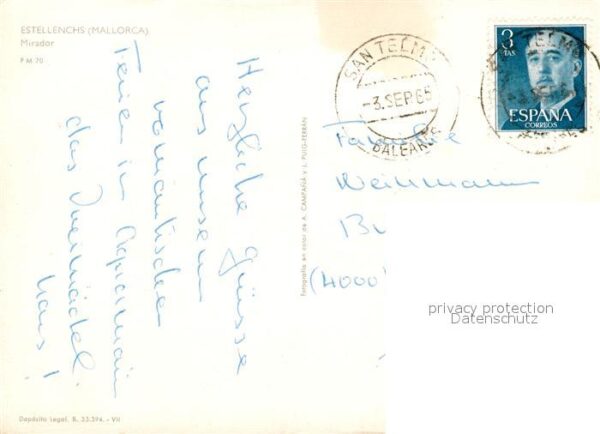 ESTELLENCHS (MALLORCA)
Mirador
P M 70
Herzliche Grüsse
aus unsern
romantischen
Ferien in
das
Hans!
Fotografía en color de A. CAMPAÑÁ y J. PUIG-FERRÁN
SAN TELMO
-3. SEP. 65
BALEARES
3
PTAS
ESPAÑA
CORREOS
Familie
Weinmann
(4000
privacy protection
Datenschutz
Depósito Legal. B. 33.594 - VII